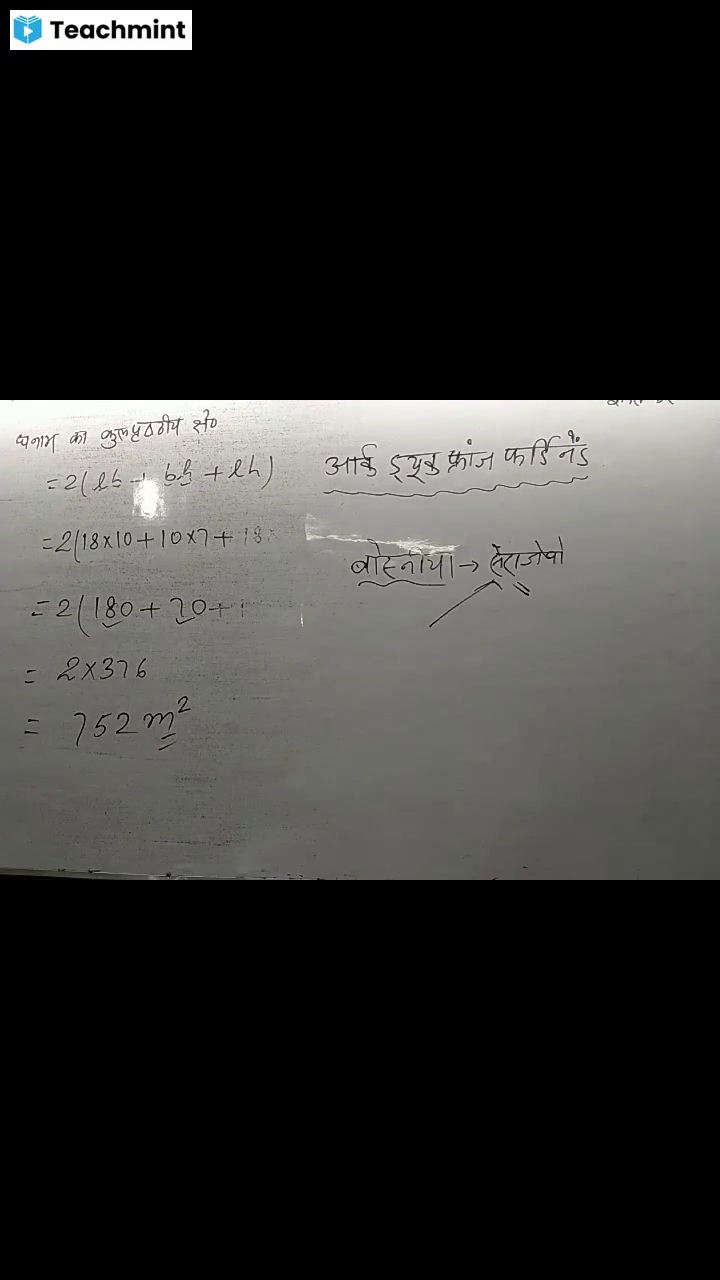 Teachmint
घनाभ का कुलपृष्ठीय क्षे०
=2(lb + bh + lh)
=2(18×10+10×7+18×
=2(180+70+
= 2×376
= 752 m²
आर्क ड्यूक फ्रांज फर्डिनेंड
बोस्नीया→ सेराजेवो